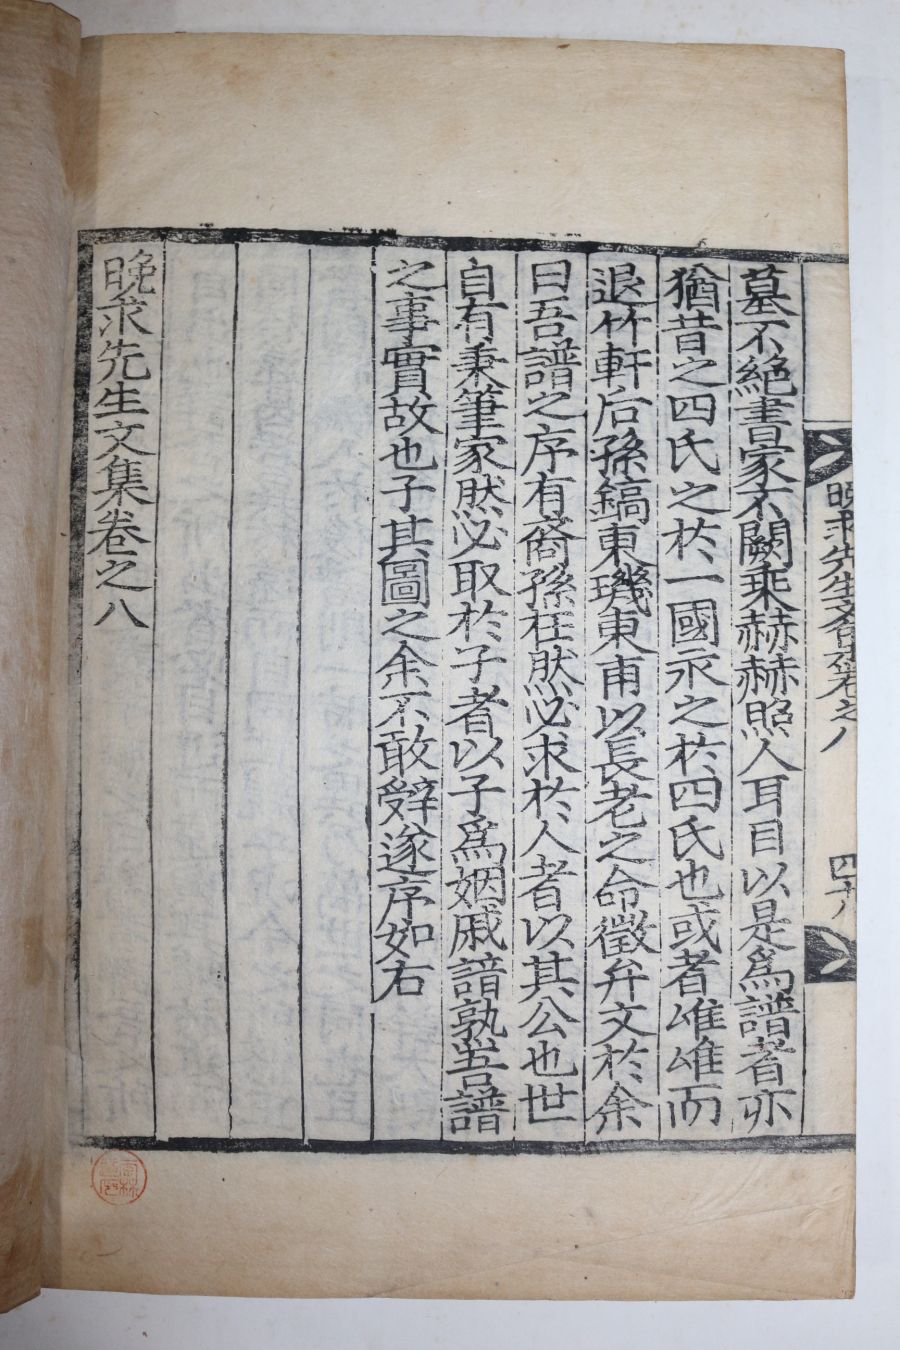 晚求先生文集卷之八
四十八
墓不絶書冢不闕乘赫赫照人耳目以是爲譜者亦
猶昔之四氏之於一國永之於四氏也或者唯唯而
退竹軒后孫鎬東璣東甫以長老之命徵弁文於余
曰吾譜之序有裔孫在然必求於人者以其公也世
自有秉筆家然必取於子者以子爲姻戚諳孰吾譜
之事實故也子其圖之余不敢辭遂序如右
晚求先生文集卷之八